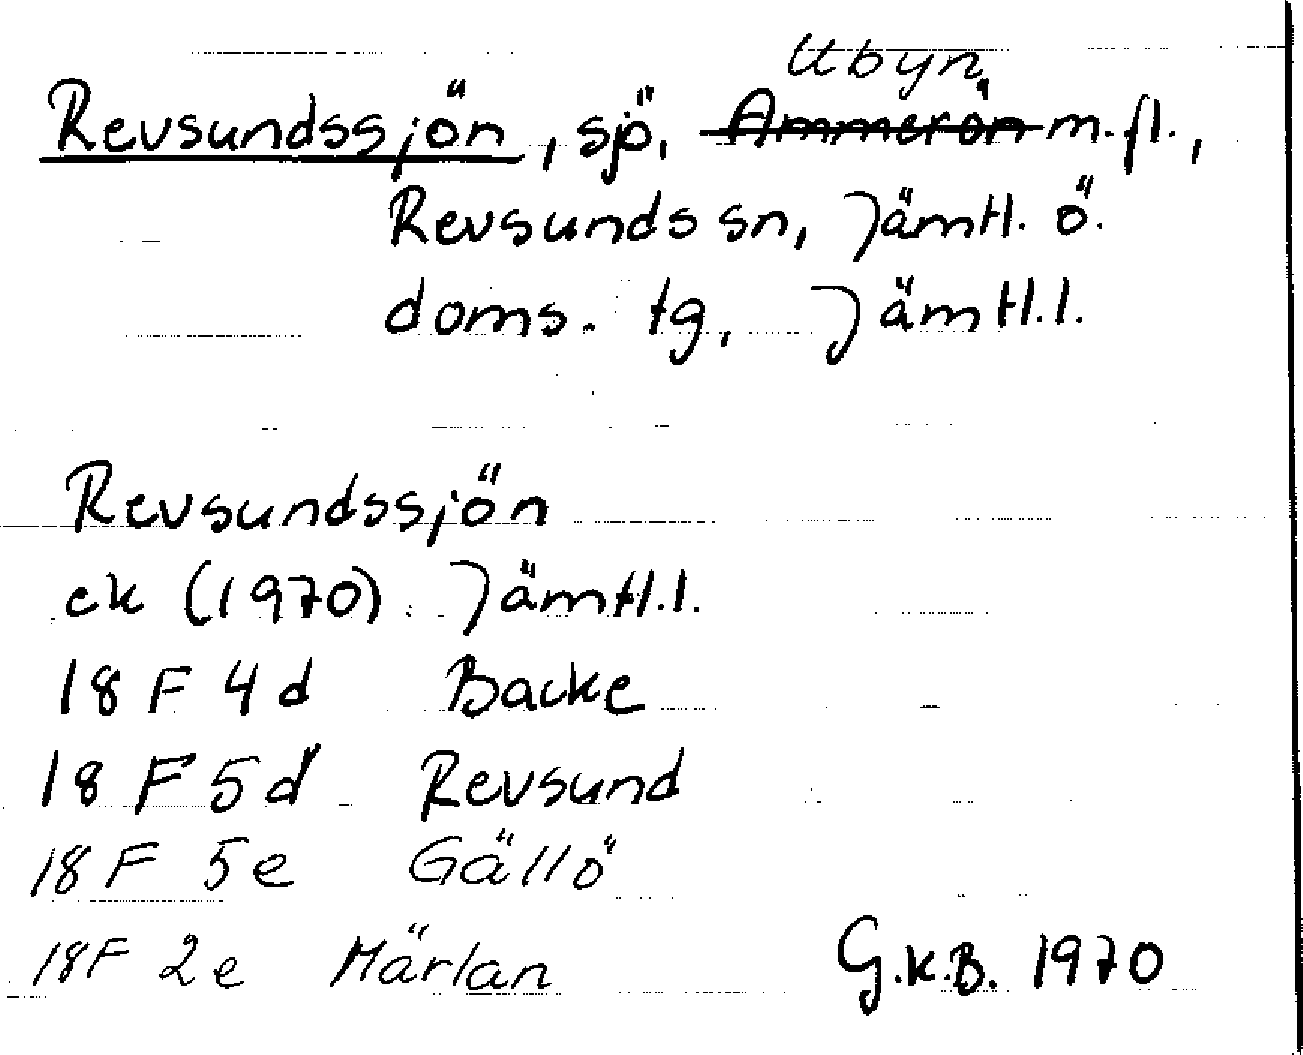 Ubyn
Revsundssjön, sjö, Ammerön m.fl.,
Revsunds sn, Jämtl. ö.
doms. tg, Jämtl.l.
Revsundssjön
ek (1970) Jämtl.l.
18 F 4 d Backe
18 F 5 d Revsund
18 F 5 e Gällö
18F 2 e Märlan
G.K.B. 1970